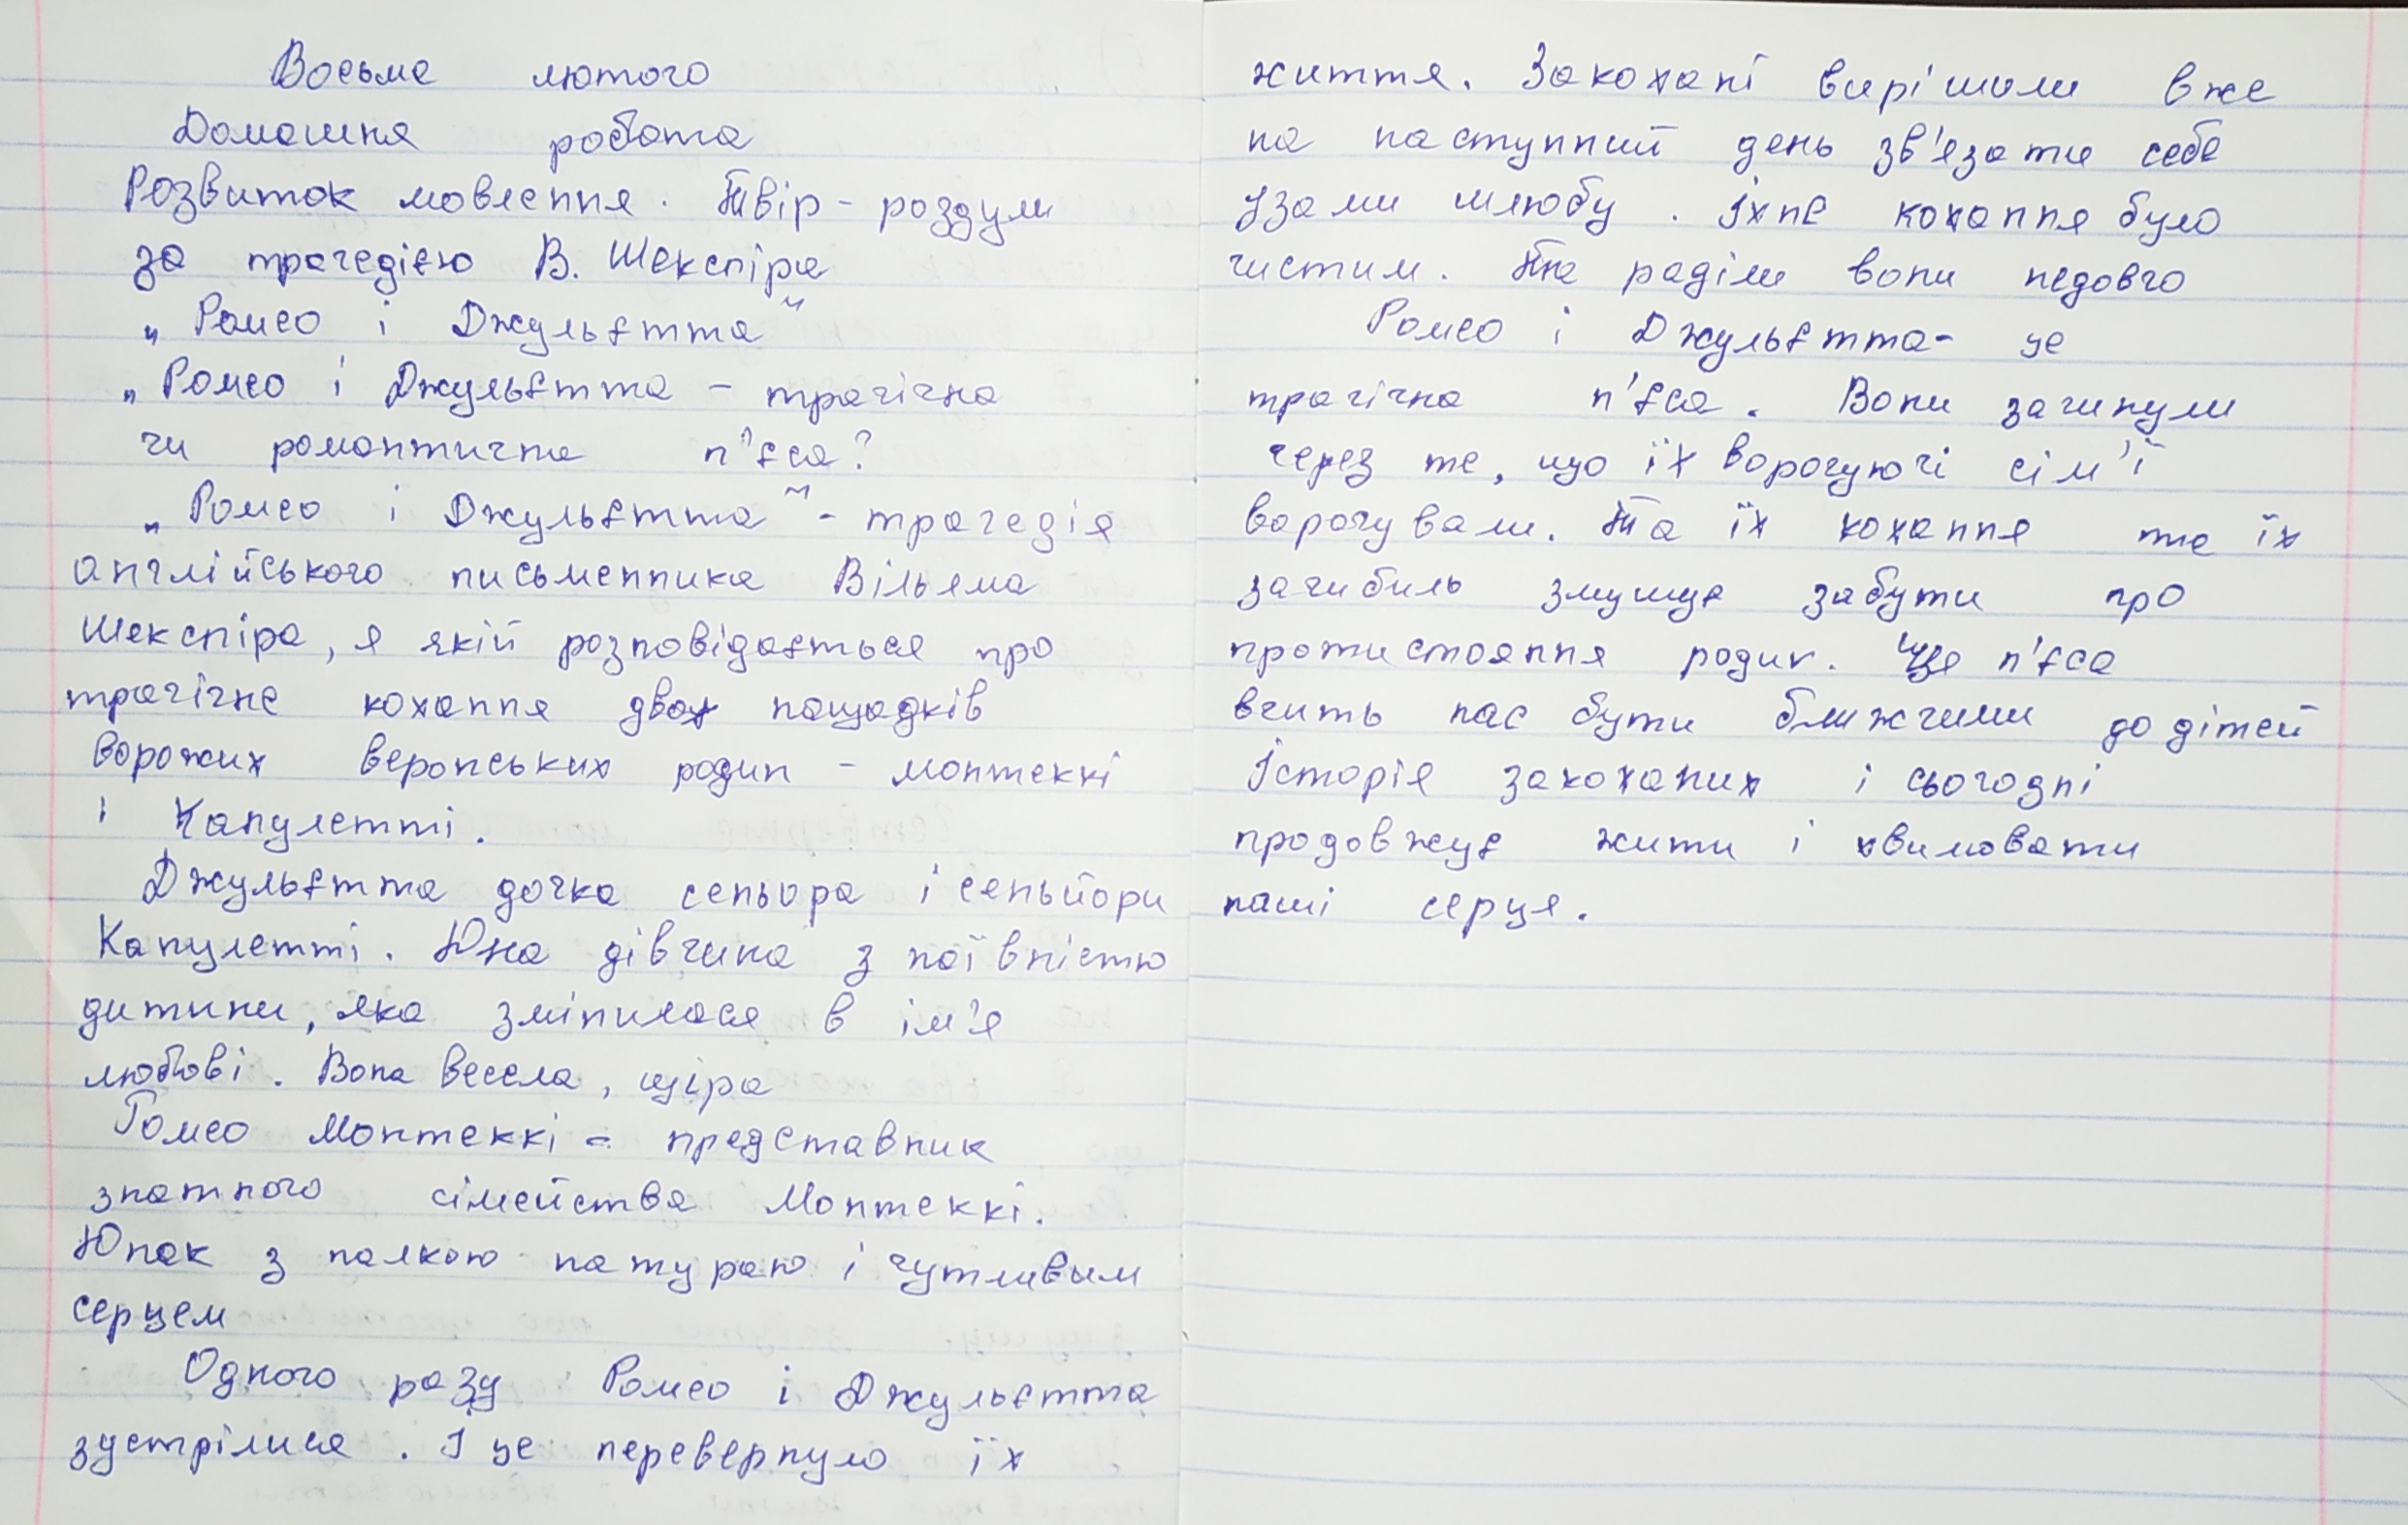 Восьме лютого
Домашня робота
Розвиток мовлення. Твір - роздум
за трагедією В. Шекспіра
„Ромео і Джульєтта"
„Ромео і Джульєтта - трагічна
чи романтична п'єса?
„Ромео і Джульєтта" - трагедія
англійського письменника Вільяма
Шекспіра, я якій розповідається про
трагічне кохання двох нащадків
ворожих веронських родин - монтеккі
і Капулетті.
Джульєтта дочка сеньора і сеньйори
Капулетті. Юна дівчина з наївністю
дитини, яка змінилася в ім'я
любові. Вона весела, щіра
Ромео Монтеккі - представник
знатного сімейства Монтеккі.
Юнак з палкою натурою і чутливым
серцем
Одного разу Ромео і Джульєтта
зустрілися. І це перевернуло їх
життя. Закохані вирішили вже
на наступний день зв'язати себе
узами шлюбу. Їхнє кохання було
чистим. Та раділи вони недовго
Ромео і Джульєтта- це
трагічна п'єса. Вони загинули
через те, що їх ворогуючі сім'ї
ворогували. Та їх кохання та їх
загибиль змушує забути про
протистояння родин. Ця п'єса
вчить нас бути ближчими до дітей
Історія закоханих і сьогодні
продовжує жити і хвилювати
наші серця.